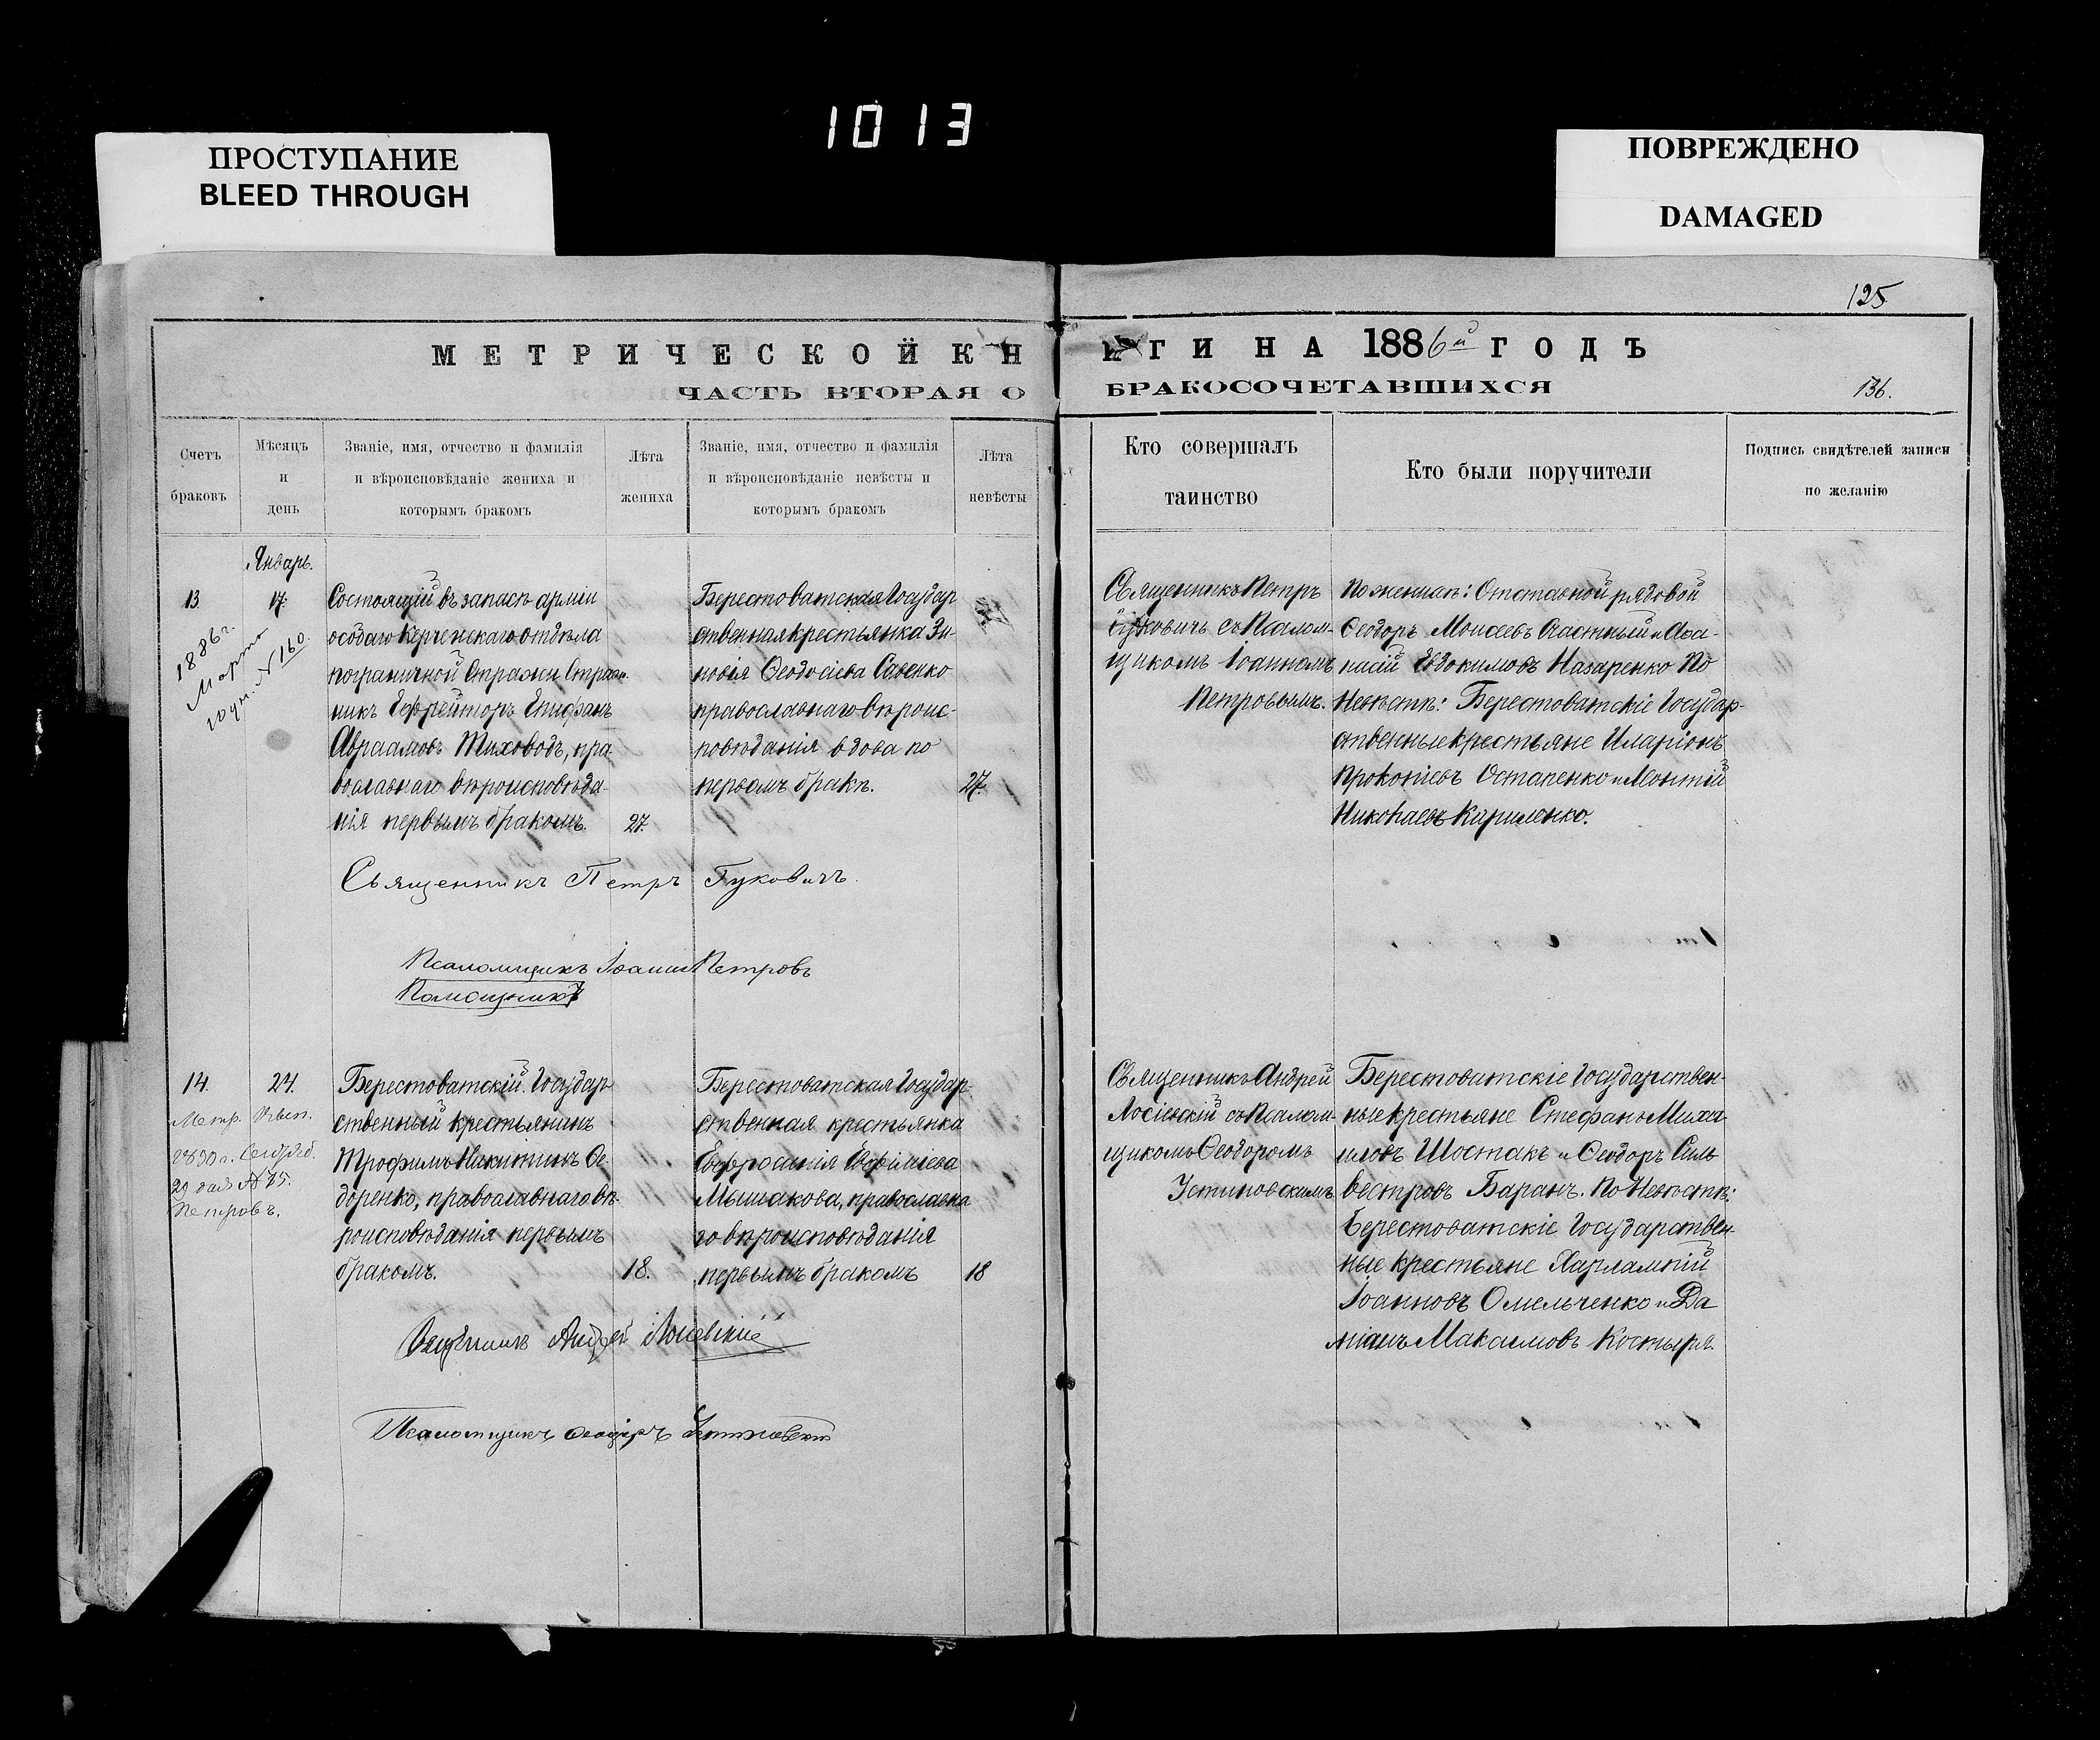 1013
ПРОСТУПАНИЕ
BLEED THROUGH
ПОВРЕЖДЕНО
DAMAGED
125
МЕТРИЧЕСКОЙ КН
ИГИ НА 1886й ГОДЪ
ЧАСТЬ ВТОРАЯ О
БРАКОСОЧЕТАВШИХСЯ
136.
Счетъ
браковъ
Мѣсяцъ
и
день
Званіе, имя, отчество и фамилія
и вѣроисповѣданіе жениха и
которымъ бракомъ
Лѣта
жениха
Званіе, имя, отчество и фамилія
и вѣроисповѣданіе невѣсты и
которымъ бракомъ
Лѣта
невѣсты
Кто совершалъ
таинство
Кто были поручители
Подпись свидѣтелей записи
по желанію
Январь.
13
17.
1886 г.
Марта
10 дня. № 160.
Состоящій въ запасѣ арміи
особаго Керченскаго отдѣла
пограничной Стражи Страж-
никъ Ефрейторъ Епифанъ
Авраамовъ Тиховодъ, пра
вославнаго вѣроисповѣда-
нія первымъ бракомъ.
27.
Берестоватская Государ
ственная крестьянка Зи-
новія Ѳеодосіева Савенко
православнаго вѣроис-
повѣданія вдова по
первомъ бракѣ.
27.
Священникъ Петръ
Гуковичъ съ Псалом-
щикомъ Іоанномъ
Петровымъ.
По женихѣ: Отставной рядовой
Ѳеодоръ Моисеевъ Счастный и Аѳа-
насій Евдокимовъ Назаренко По
Невѣстѣ: Берестоватскіе Государ-
ственные крестьяне Иларіонъ
Прокопіевъ Остапенко и Леонтій
Николаевъ Кириленко.
Священникъ Петръ Гуковичъ
Псаломщикъ Іоаннъ Петровъ
Помощникъ
14.
24.
Метр. вып.
1890 г.
29 дня № 75.
Петровъ.
Берестоватскій Государ
ственный крестьянинъ
Трофимъ Никитинъ Ѳе-
доренко, православнаго вѣ-
роисповѣданія первымъ
бракомъ.
18.
Берестоватская Государ-
ственная крестьянка
Евфросинія Евфиміева
Мышакова, православна
го вѣроисповѣданія
первымъ бракомъ
18
Священникъ Андрей
Лосіевскій съ Псалом-
щикомъ Ѳеодоромъ
Устиновскимъ
Берестоватскіе Государствен-
ные крестьяне Стефанъ Миха
иловъ Шостакъ и Ѳеодоръ Силь
вестровъ Баранъ. По Невѣстѣ:
Берестоватскіе Государствен-
ные крестьяне Харлампій
Іоанновъ Омельченко и Да
міанъ Максимовъ Костыря.
Священникъ Андрей Лосіевскій
Псаломщикъ Ѳеодоръ Устиновскій